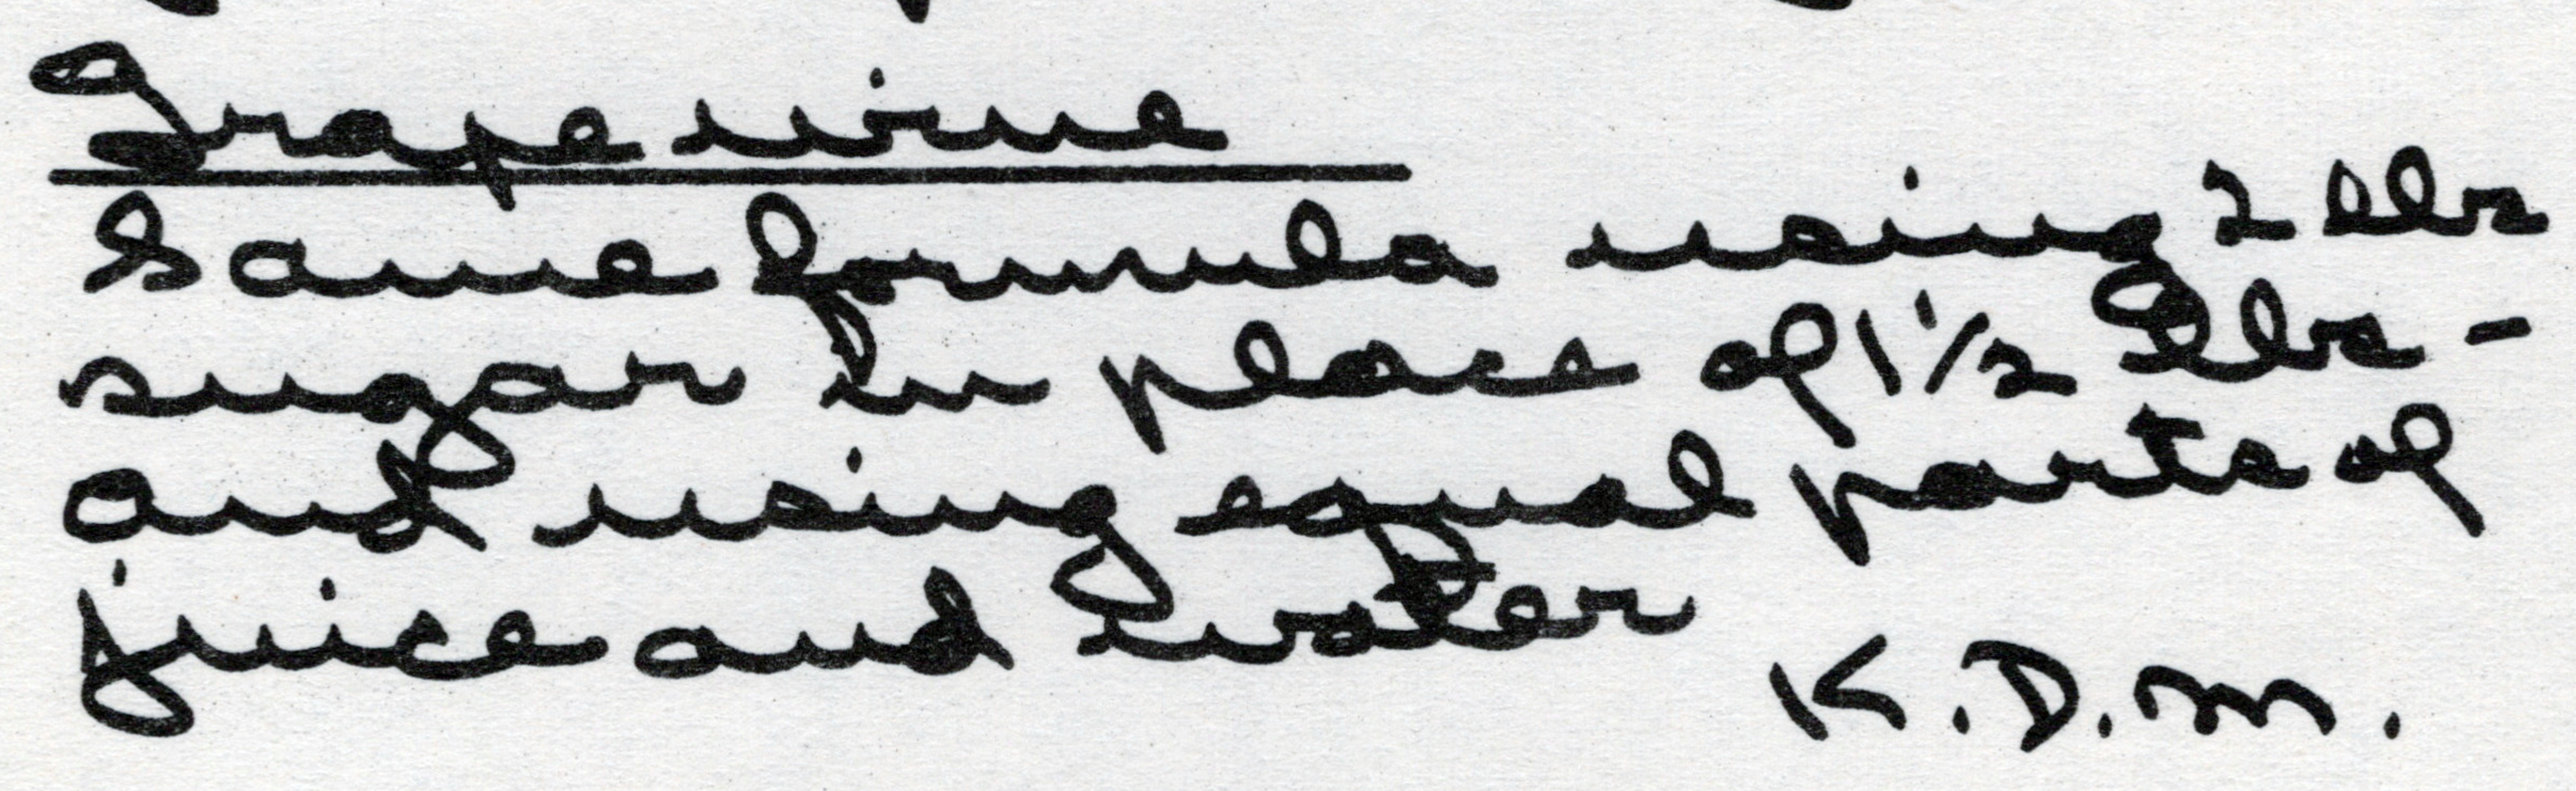 Grape wine
Same formula using 2 lbs
sugar in place of 1 1/2 lbs -
and using equal parts of
juice and water
K.D.M.